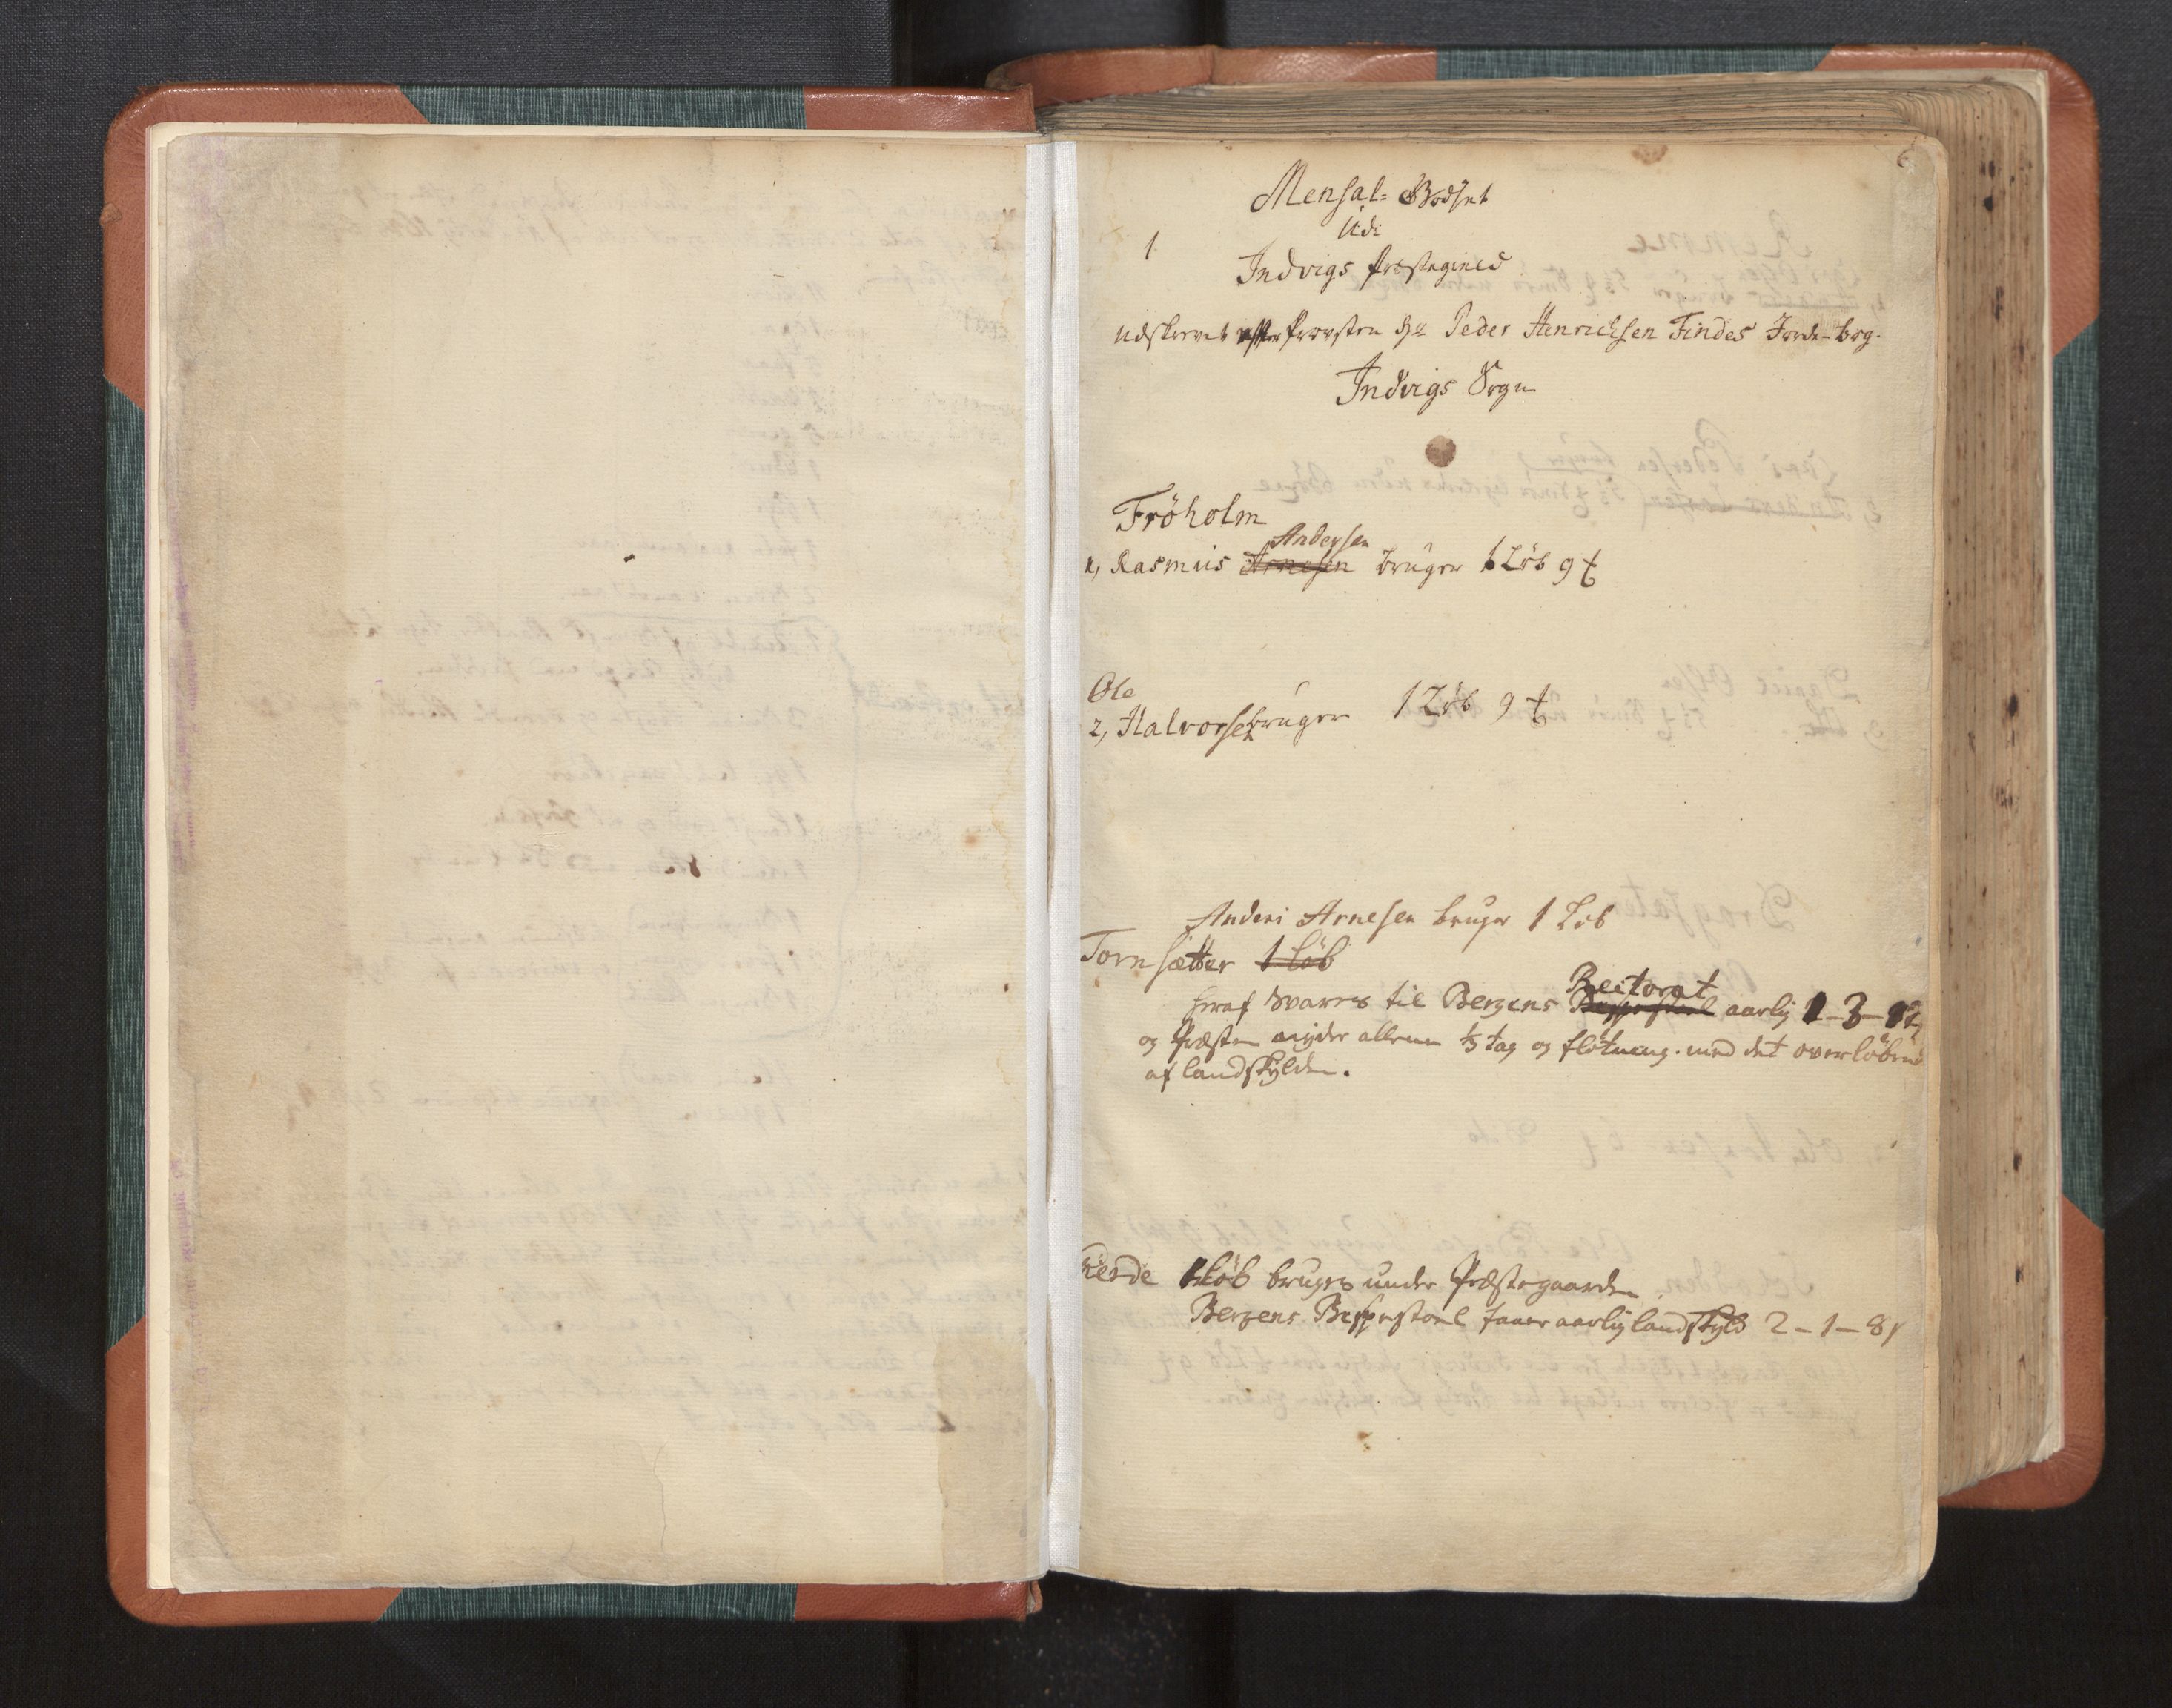 6
Mensal- Godset
udi
1
Indvigs Præstegield
udskrevet efter Provsten Hr Peder Henrichsen Findes Jorde-bog.
Indvigs Sogn
Fröholm
Andersen
1, Rasmus Arnesen bruger 1 Löb 9
Ole
2, Halvorsen bruger 1 Löb 9
Anders Arnesen bruger 1 Löb
Tornsætter 1 löb
Rectorat
heraf svares til Bergens Bispestoel aarlig
og Præsten nyder allene tag og flötning. med det overlöbende
af landskylden.
löb bruges under Præstegaarden
Bergens Bispestoel tager aarlig landskyld 2 - 1 - 8